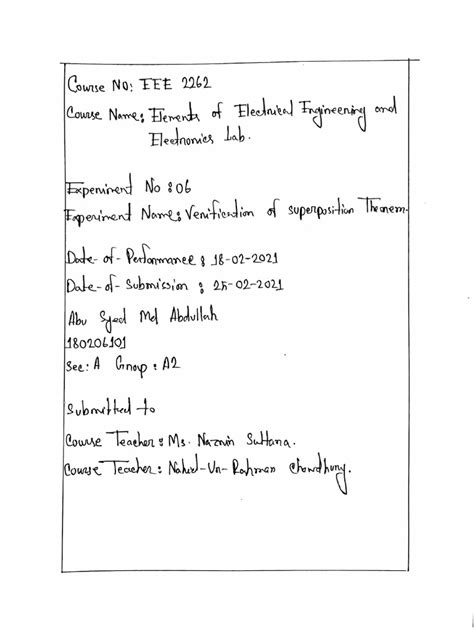 Course NO: EEE 2262
Course Name: Elements of Electrical Engineering and
Electronics Lab.
Experiment No : 06
Experiment Name: Verification of superposition Theorem.
Date-of-Performance : 18-02-2021
Date-of-Submission : 25-02-2021
Abu Syed Md Abdullah
180206101
Sec: A Group : A2
Submitted to
Course Teacher : Ms. Naznin Sultana.
Course Teacher : Nahid-Un-Rahman Chowdhury.